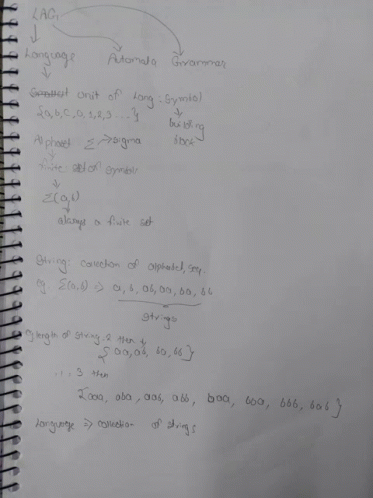 LAG
Language Automata Grammar
unit of Lang. Symbol
{a, b, c, 0, 1, 2, 3 ...}
building
block
Alphabet Σ → sigma
finite set of symbols
Σ(a,b)
always a finite set
String: collection of alphabet,
eg Σ(a,b) ⇒ a, b, ab, aa, ba, bb
Strings
length of string 2 then
{aa, ab, ba, bb}
... 3 then
{aaa, aba, aab, abb, baa, bba, bbb, bab}
Language ⇒ collection of strings